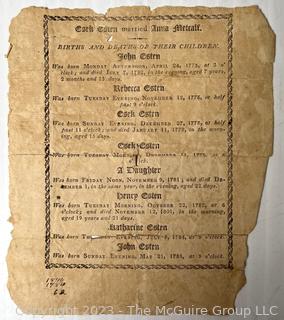 Esek Esten married Anna Metcalf.
BIRTHS AND DEATHS OF THEIR CHILDREN.
John Esten
Was born MONDAY AFTERNOON, APRIL 24, 1775, at 3 o'
clock; and died JULY 7, 1782, in the evening, aged 7 years,
2 months and 13 days.
Rebecca Esten
Was born TUESDAY EVENING, NOVEMBER 12, 1776, at half
past 9 o'clock.
Esek Esten
Was born SUNDAY EVENING, DECEMBER 27, 1778, at half
past 11 o'clock; and died JANUARY 11, 1779, in the morn-
ing, aged 15 days.
Esek Esten
Was born TUESDAY MORNING, DECEMBER
o'clock.
A Daughter
Was born FRIDAY NOON, NOVEMBER 9, 1781; and died DE-
CEMBER 1, in the same year, in the evening, aged 22 days.
Henry Esten
Was born TUESDAY MORNING, OCTOBER 22, 1782, at 6
o'clock; and died NOVEMBER 12, 1801, in the morning,
aged 19 years and 21 days.
Katharine Esten
Was born TUESDAY EVENING, 1784, at 9 o'clock.
John Esten
Was born SUNDAY EVENING, MAY 21, at 9 o'clock.
Copyright 2023 - The McGuire Group LLC